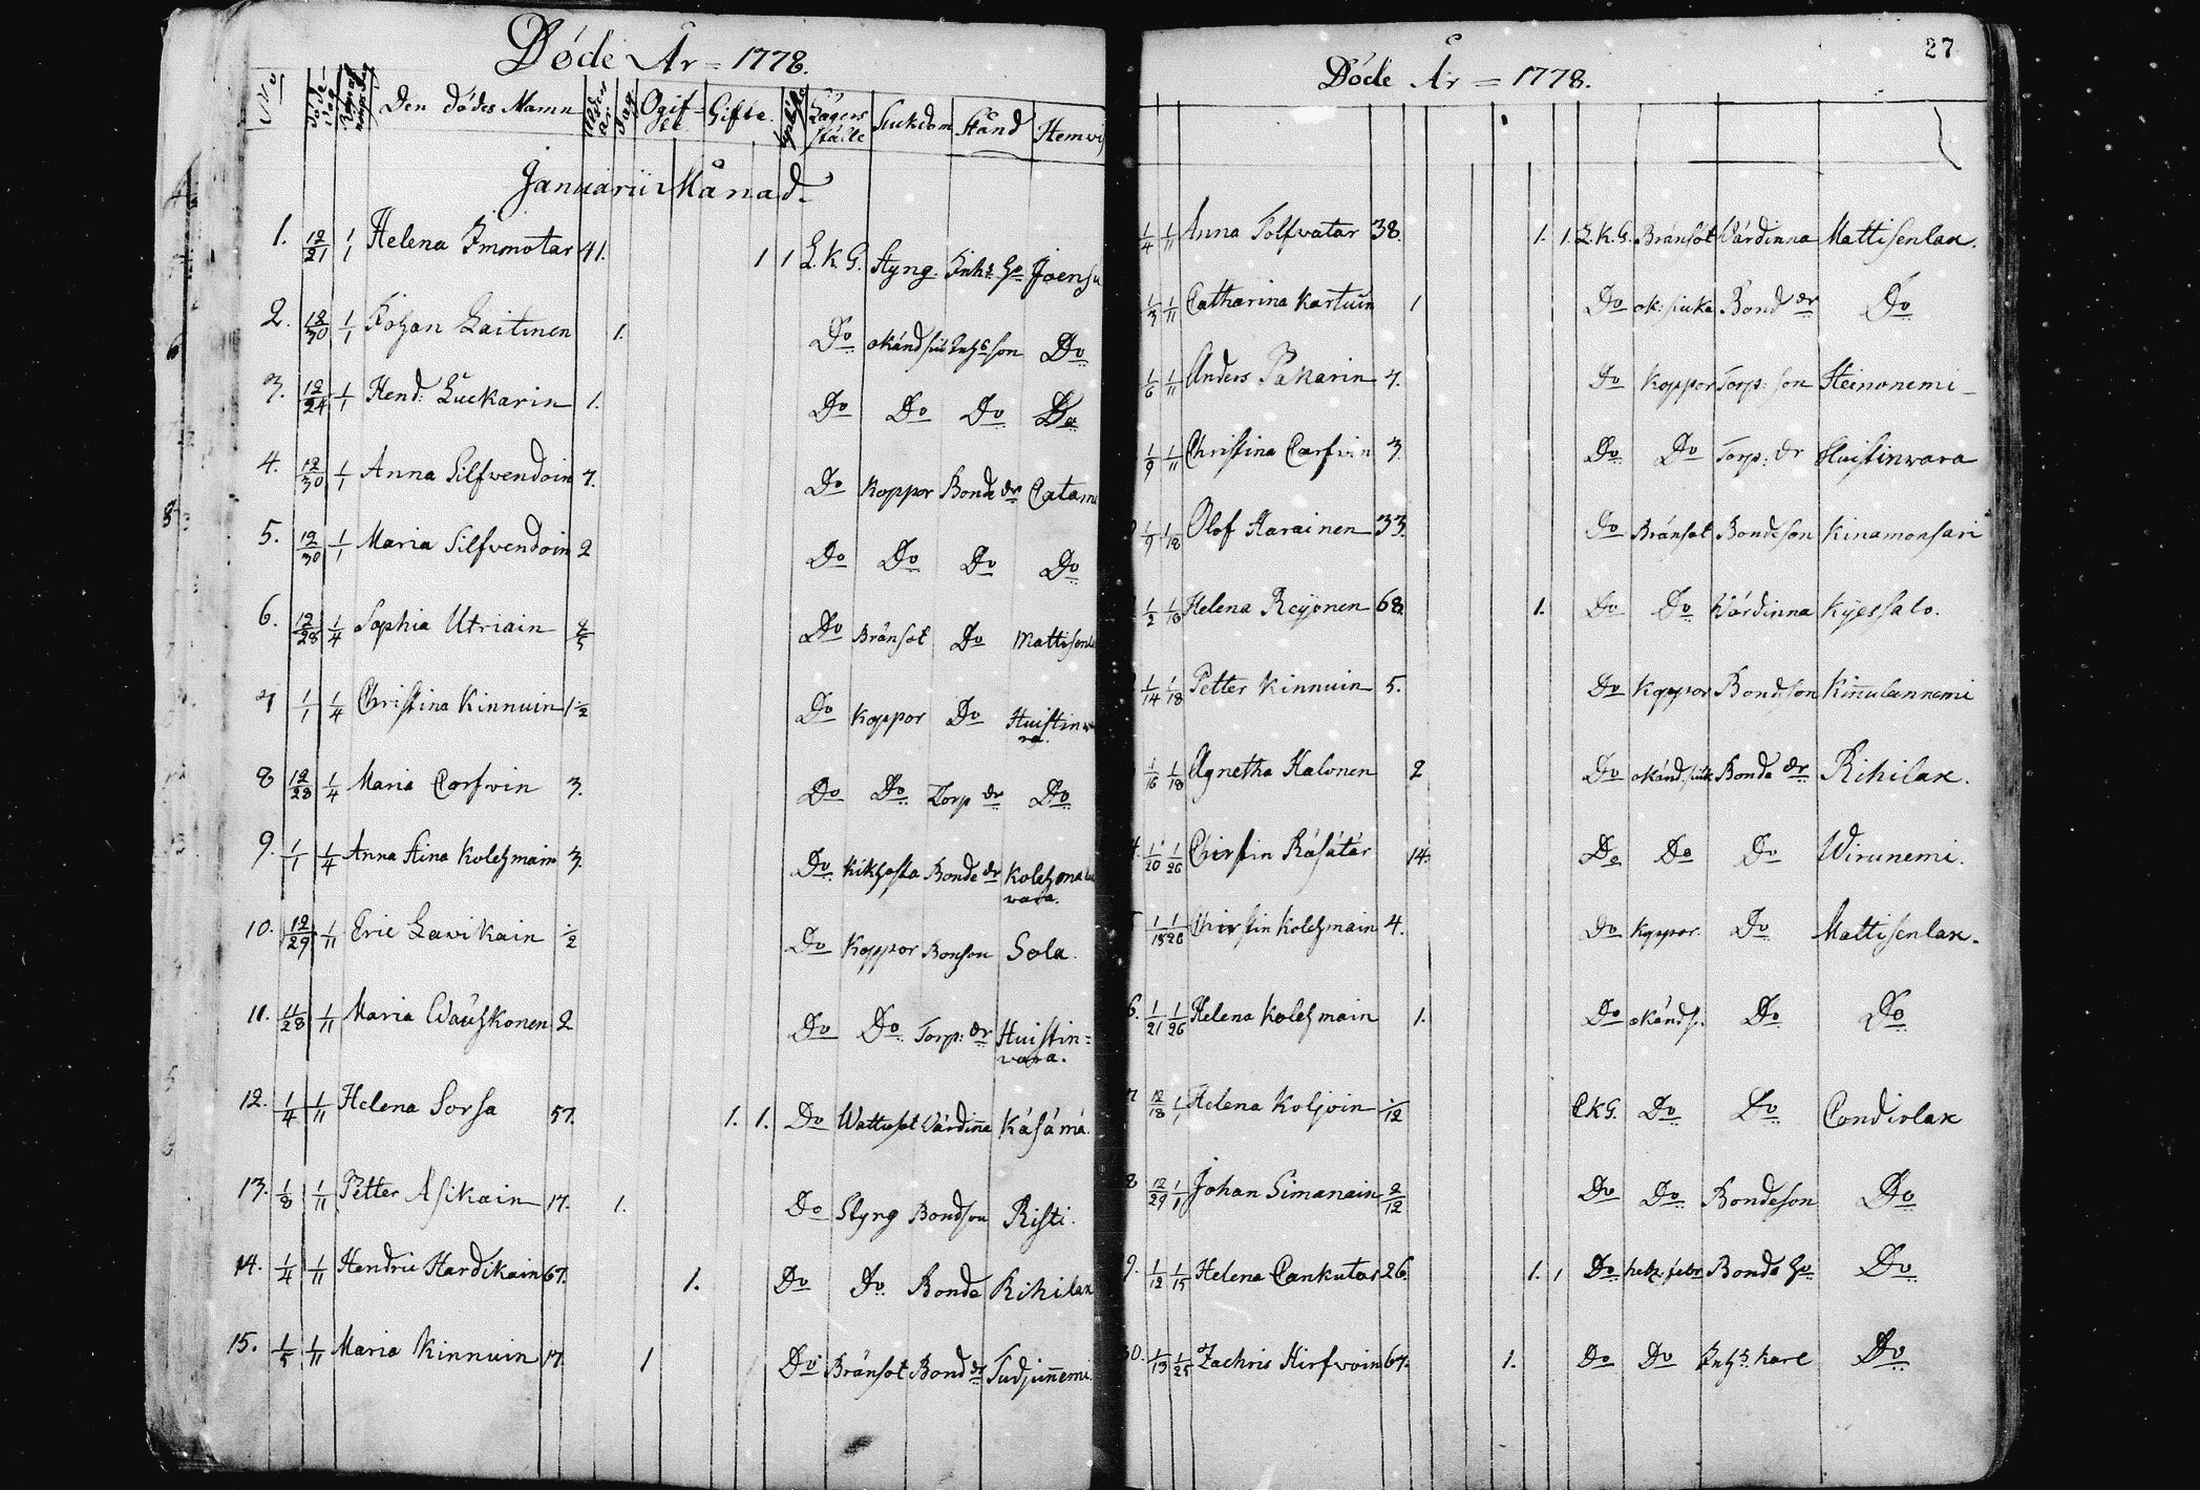 Döde År = 1778.
No Döde dag Den dödes Namn Ålder år. Dag Ogifte Gifte. Lägerställe Siukdom Stånd Hemvi
Januarii Månad.
1. 12/21 1/1 Helena Immotar 41. 1 1 L.K.G. Styng Inhs Ho Joensu
2. 12/30 1/1 Johan Laitinen 1. Do okänd siuk Inhs son Do
3. 12/24 1/1 Hend: Luckarin 1. Do Do Do Do
4. 12/30 1/1 Anna Silfvendoin 7. Do Koppor Bonde dr Catama
5. 12/30 1/1 Maria Silfvendoin 2 Do Do Do Do
6. 12/28 1/4 Sophia Utriain Do Bränsot Do Mattisenl
7 1/1 1/4 Christina Kinnuin 1 1/2 Do Koppor Do Huistinwa
ra.
8 12/28 1/4 Maria Corfvin 3. Do Do Torp dr Do
9. 1/1 1/4 Anna Stina Kolehmain 3. Do Kikhosta Bonde dr Kolehma
wara.
10. 12/29 1/11 Eric Lavikain 1/2 Do Koppor Bonson Sola.
11. 11/28 1/11 Maria Wäüskonen 2 Do Do Torp: dr Huistin=
vara.
12. 1/4 1/11 Helena Sorsa 57. 1. 1. Do Wattusot Värdiña Käsämä.
13. 1/8 1/11 Petter Asikain 17. 1. Do Styng Bondson Risti.
14. 1/4 1/11 Hendric Hardikain 67. 1. Do Do Bonde Rihilax
15. 1/5 1/11 Maria Kinnuin 17. 1 Do Bränsot Bond dr Tudjuñemi.
27
Döde År = 1778.
1/4 1/11 Anna Tolfvatar 38. 1. 1. L.K.G. Bränsot Värdinna Mattisenlax.
1/3 1/11 Catharina Kartuin 1 Do ok: siuka Bond dr Do
1/6 1/11 Anders Pakarin 7. Do Koppor Torp: son Heinonemi
1/9 1/11 Christina Carfvin 3. Do Do Torp: dr Huistinwara
1/9 1/18 Olof Harainen 33. Do Bränsot Bondeson Kinamonsari
1/2 1/18 Helena Reijonen 68. 1. Do Do Värdinna Kyessalo.
1/14 1/18 Petter Kinnuin 5. Do Koppor Bondson Kiñulannemi
1/16 1/18 Agnetha Halonen 2 Do okänd siuk Bonde dr Rihilax.
4. 1/20 1/26 Chirstin Räsätär 14. Do Do Do Wirunemi.
5 1/18 1/26 Chirstin Kolehmain 4. Do Koppor. Do Mattisenlax.
6. 1/21 1/26 Helena Kolehmain 1. Do okänd s. Do Do
7 12/18 1/1 Helena Koljoin /12 C.K.G. Do Do Condiolax
8 12/29 1/1 Johan Simanain 2/12 Do Do Bondeson Do
9. 1/12 1/15 Helena Cankutar 26. 1. 1 Do hetz: febr Bonde Ho Do
30. 1/13 1/25 Zachris Hirfvoin 67. 1. Do Do Inhs. karl Do